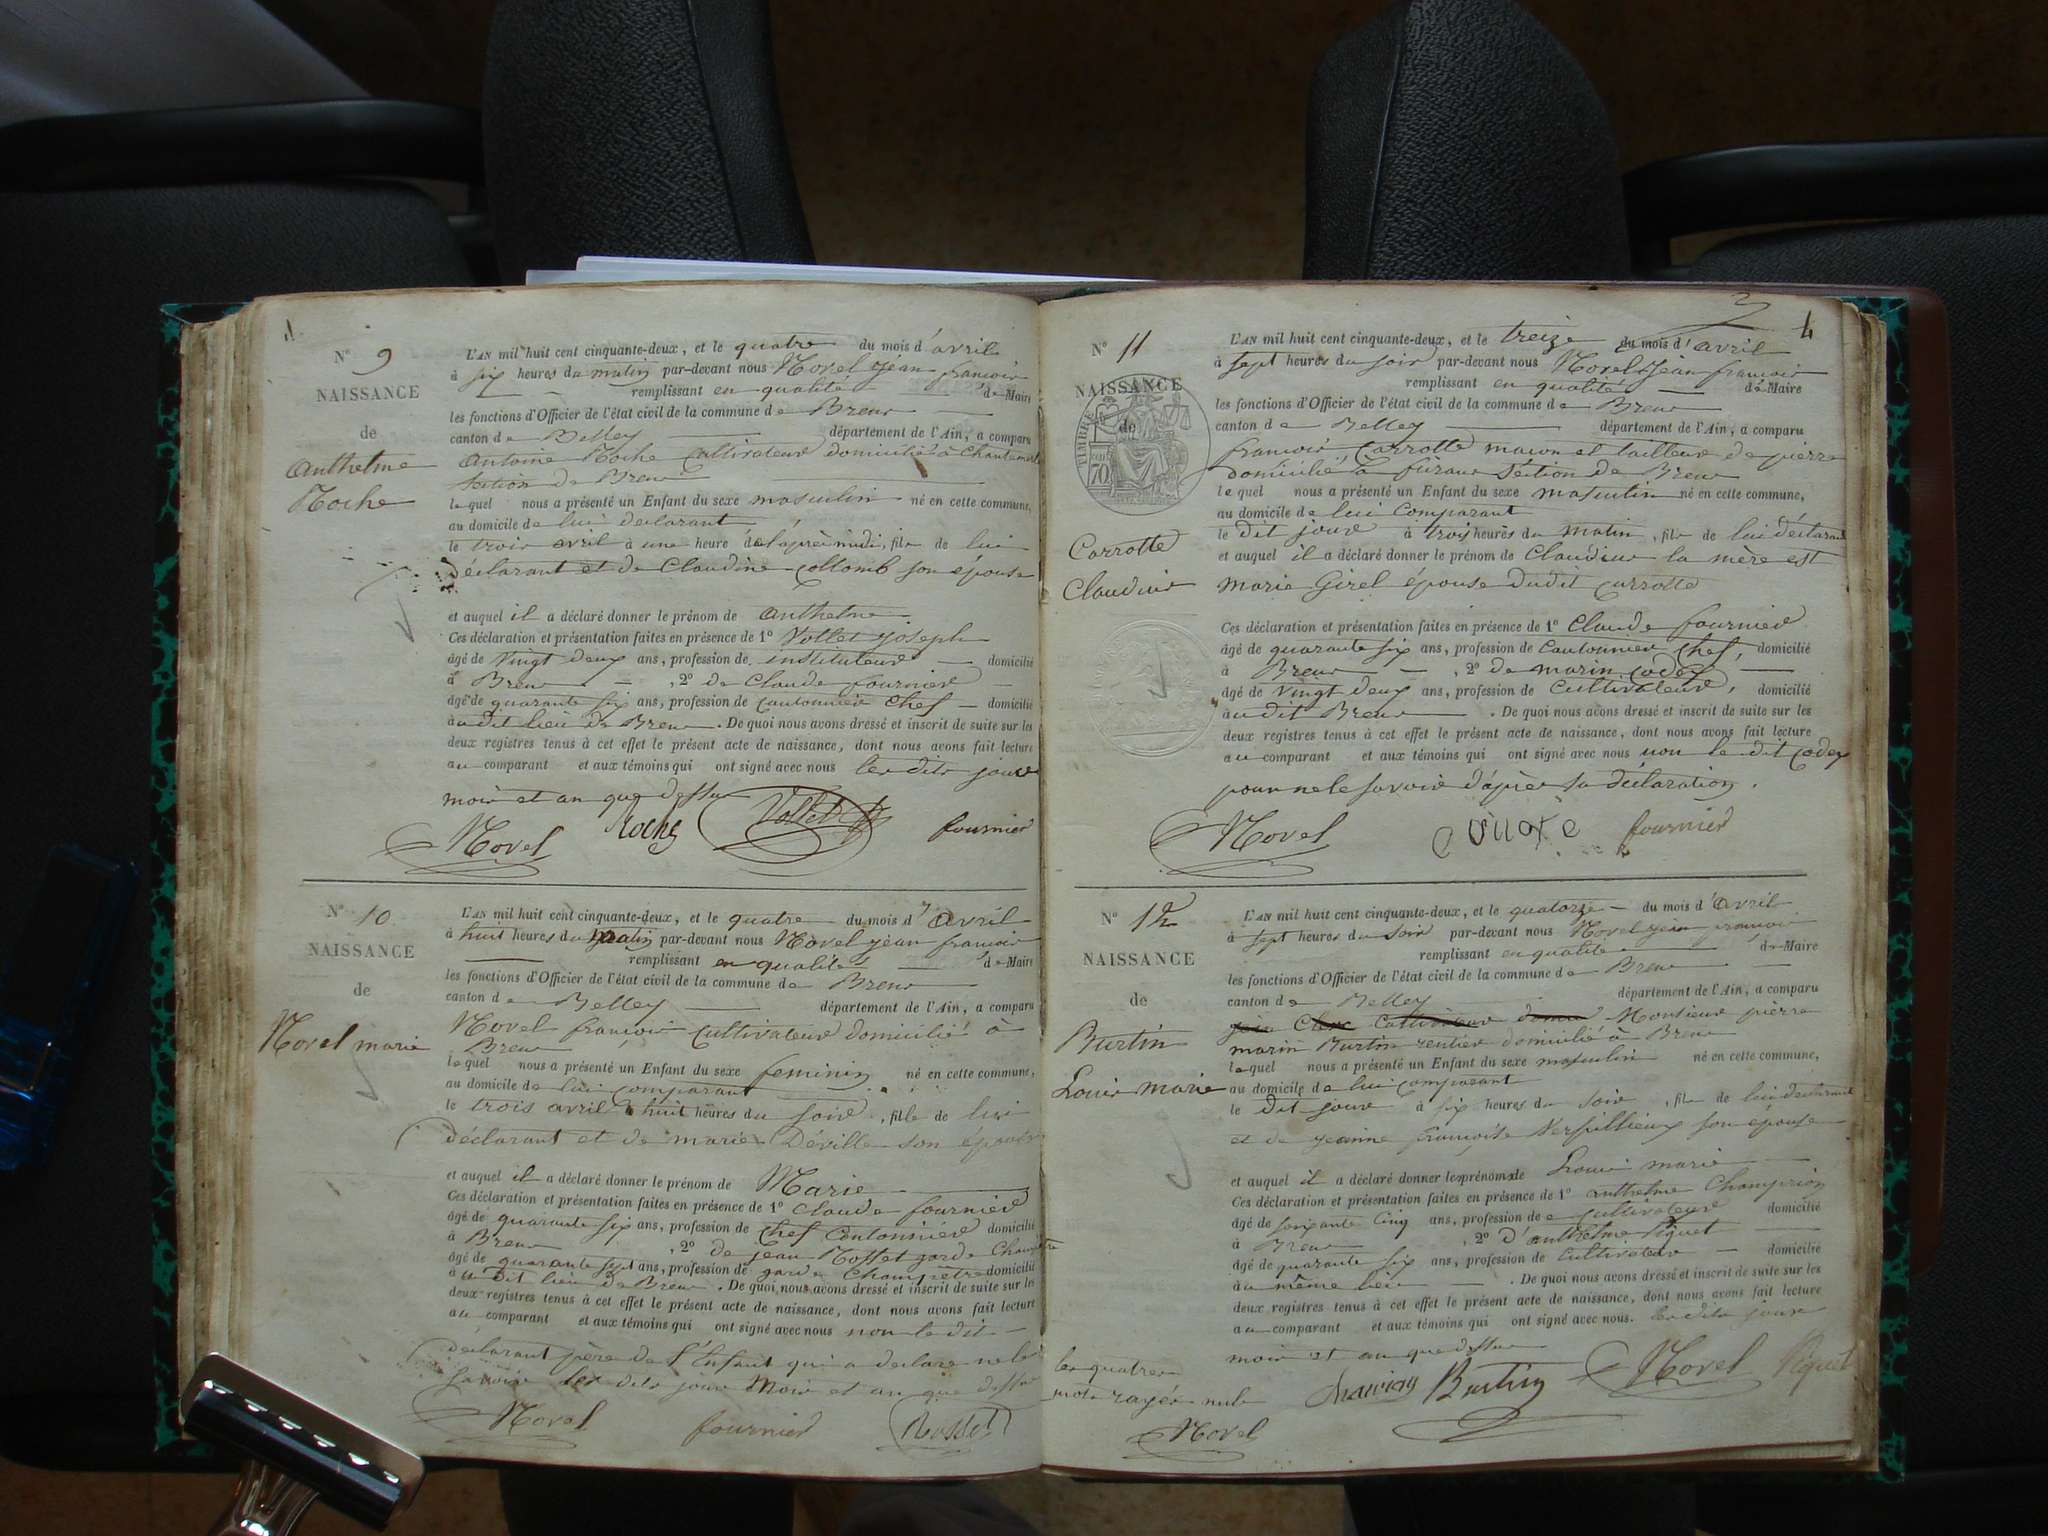 N° 9
NAISSANCE
de
Anthelme
Roche
L'AN mil huit cent cinquante-deux, et le quatre du mois d'avril
à six heures du matin par-devant nous Novel Jean françois
remplissant en qualité de Maire
les fonctions d'Officier de l'état civil de la commune de Brens
canton de Belley département de l'Ain, a comparu
Antoine Roche Cultivateur domicilié à
Section de Brens
lequel nous a présenté un Enfant du sexe masculin né en cette commune,
au domicile de lui déclarant
le trois avril à une heure de l'après midi, fils de lui
déclarant et de Claudine Collomb son épouse
et auquel il a déclaré donner le prénom de Anthelme
Ces déclaration et présentation faites en présence de 1° Vollet Joseph
âgé de Vingt deux ans, profession de instituteur domicilié
à Brens , 2° de Claude fournier
âgé de quarante six ans, profession de Cantonnier Chef domicilié
audit lieu de Brens . De quoi nous avons dressé et inscrit de suite sur les
deux registres tenus à cet effet le présent acte de naissance, dont nous avons fait lecture
au comparant et aux témoins qui ont signé avec nous les dits jour
mois et an que dessus
Novel Roche Vollet fournier
N° 10
NAISSANCE
de
Novel marie
L'AN mil huit cent cinquante-deux, et le quatre du mois d'avril
à huit heures du matin par-devant nous Novel jean françois
remplissant en qualité de Maire
les fonctions d'Officier de l'état civil de la commune de Brens
canton de Belley département de l'Ain, a comparu
Novel françois Cultivateur domicilié à
Brens
lequel nous a présenté un Enfant du sexe feminin né en cette commune,
au domicile de lui comparant
le trois avril à huit heures du soir , fille de lui
déclarant et de marie Déville son épouse
et auquel il a déclaré donner le prénom de Marie
Ces déclaration et présentation faites en présence de 1° Claude fournier
âgé de quarante six ans, profession de Chef Cantonnier domicilié
à Brens , 2° de jean Rosset garde Champêtre
âgé de quarante sept ans, profession de garde Champêtre domicilié
au dit lieu de Brens . De quoi nous avons dressé et inscrit de suite sur les
deux registres tenus à cet effet le présent acte de naissance, dont nous avons fait lecture
au comparant et aux témoins qui ont signé avec nous non le dit
déclarant père de l'Enfant qui a declaré ne le
savoir les dits jour Mois et an que dessus
Novel fournier Rosset
4
N° 11
NAISSANCE
de
TIMBRE
70
Carrotte
Claudius
L'AN mil huit cent cinquante-deux, et le treize du mois d'avril
à sept heures du soir par-devant nous Novel Jean françois
remplissant en qualité de Maire
les fonctions d'Officier de l'état civil de la commune de Brens
canton de Belley département de l'Ain, a comparu
françois Carrotte maçon et tailleur de pierre
domicilié à section de Brens
lequel nous a présenté un Enfant du sexe masculin né en cette commune,
au domicile de lui Comparant
le dit jour à trois heures du matin , fils de lui déclarant
et auquel il a déclaré donner le prénom de Claudius la mère est
Marie Girel épouse dudit Carrotte
Ces déclaration et présentation faites en présence de 1° Claude fournier
âgé de quarante six ans, profession de Cantonnier Chef, domicilié
à Brens , 2° de marin Codex
âgé de vingt deux ans, profession de Cultivateur, domicilié
au dit Brens . De quoi nous avons dressé et inscrit de suite sur les
deux registres tenus à cet effet le présent acte de naissance, dont nous avons fait lecture
au comparant et aux témoins qui ont signé avec nous non le dit Codex
pour ne le savoir d'après sa déclaration.
Novel fournier
N° 12
NAISSANCE
de
Burtin
Louis marie
L'AN mil huit cent cinquante-deux, et le quatorze du mois d'avril
à sept heures du soir par-devant nous Novel jean françois
remplissant en qualité de Maire
les fonctions d'Officier de l'état civil de la commune de Brens
canton de Belley département de l'Ain, a comparu
Clerc Cultivateur Monsieur pierre
marin Burtin rentier domicilié à Brens
lequel nous a présenté un Enfant du sexe masculin né en cette commune,
au domicile de lui comparant
le dit jour à six heures du soir , fils de lui déclarant
et de jeanne françoise son épouse
et auquel il a déclaré donner les prénoms de Louis marie
Ces déclaration et présentation faites en présence de 1° anthelme Champion
âgé de soixante Cinq ans, profession de Cultivateur domicilié
à Brens , 2° d'anthelme Piquet
âgé de quarante six ans, profession de Cultivateur domicilié
au même lieu . De quoi nous avons dressé et inscrit de suite sur les
deux registres tenus à cet effet le présent acte de naissance, dont nous avons fait lecture
au comparant et aux témoins qui ont signé avec nous. les dits jour
mois et an que dessus
Burtin Novel Piquet
les quatre
mots rayés nuls
Novel